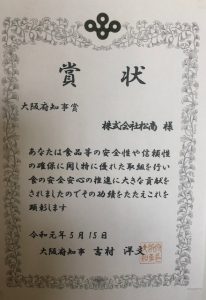 賞状
大阪府知事賞
株式会社松高 様
あなたは食品等の安全性や信頼性
の確保に関し特に優れた取組を行い
食の安全安心の推進に大きな貢献を
されましたのでその功績をたたえこれを
顕彰します
令和元年5月15日
大阪府知事 吉村洋文